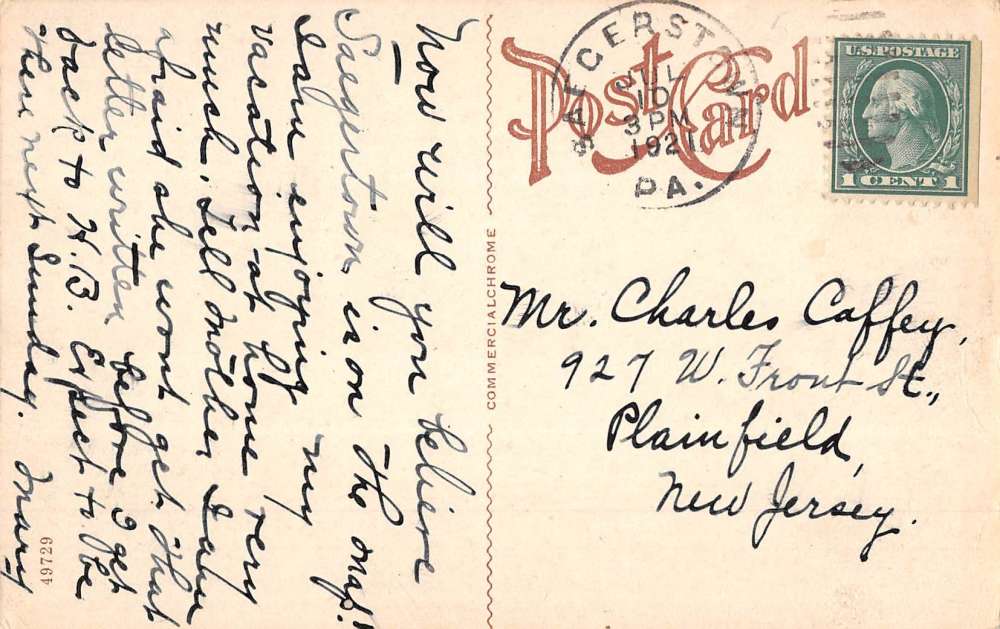 Now will you believe
Saegertown is on the map!
I am enjoying my
vacation at home very
much. Tell Mother I am
afraid she wont get that
letter written before I get
back to H.B. Expect to be
there next Sunday. Mary
49729
COMMERCIALCHROME
Post Card
SAEGERSTOWN
JUL
10
3 PM
1921
PA.
U.S. POSTAGE
1 CENT 1
Mr. Charles Caffey,
927 W. Front St.,
Plainfield,
New Jersey.